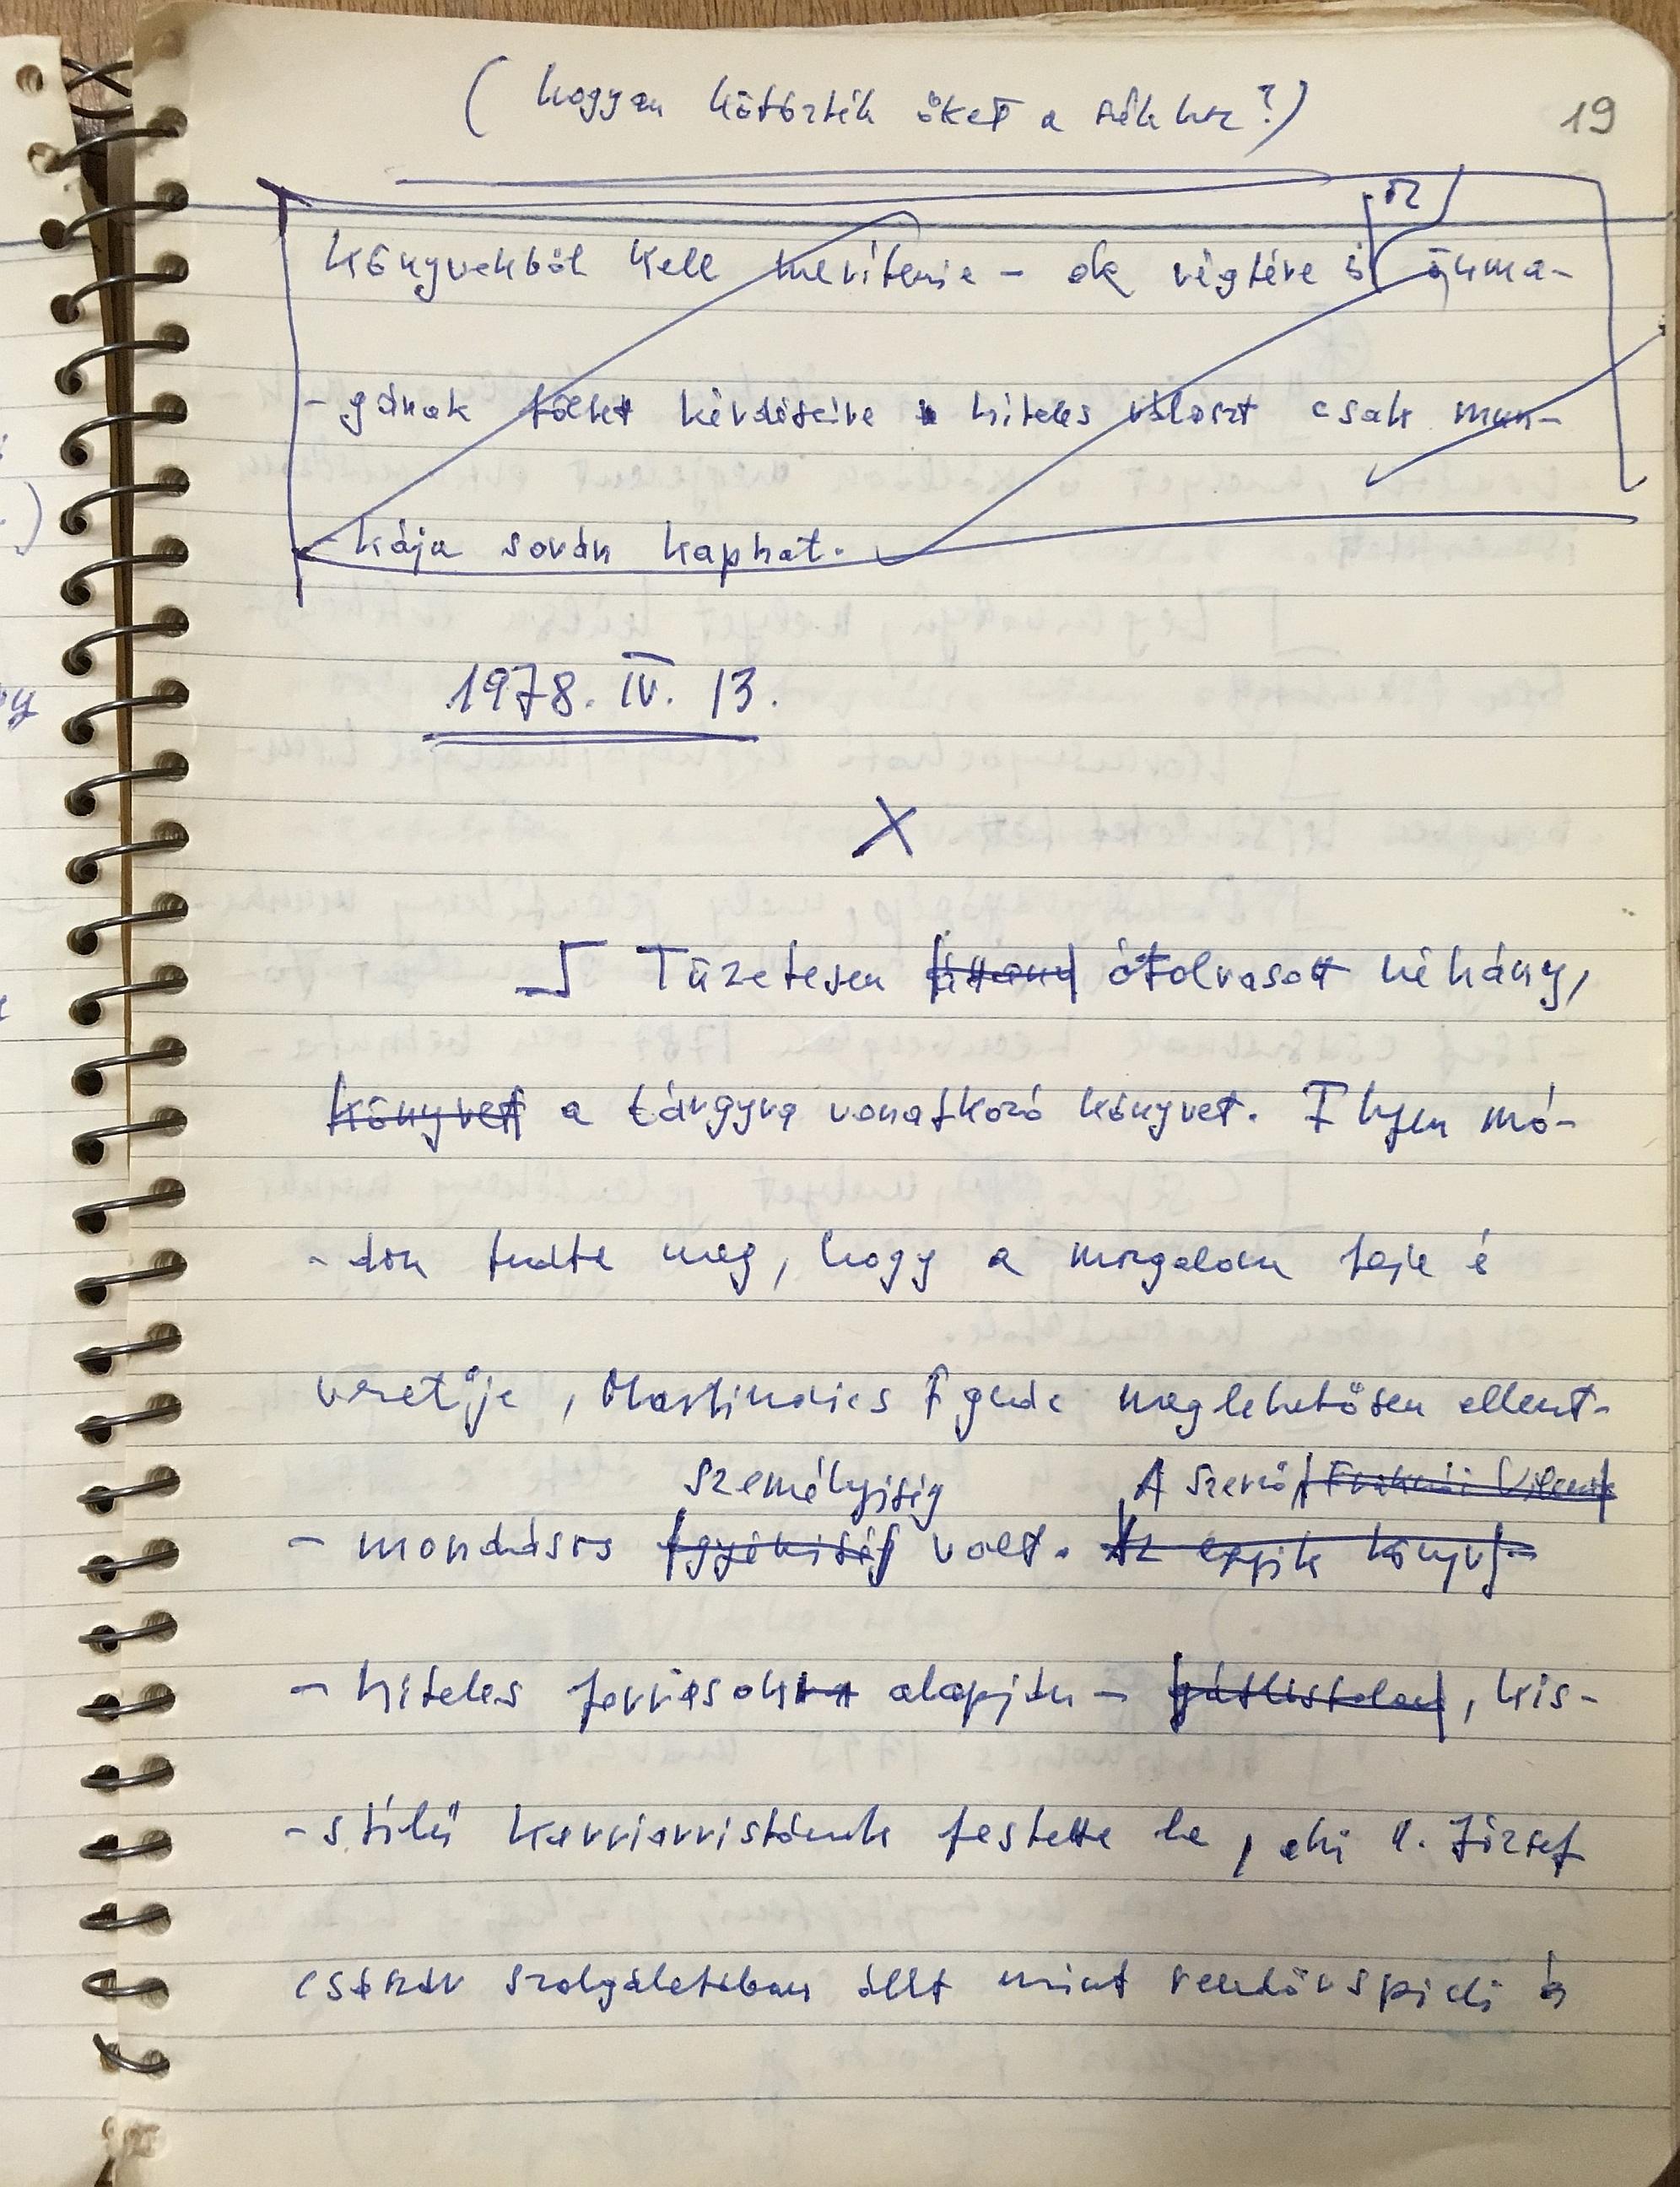 (hogyan kötözték őket a székhez?)
19
az
könyvekből kell merítenie – de végtére is önma-
- gának föltett kérdéseire hiteles választ csak mun-
- kája során kaphat.
1978. IV. 13.
X
Tüzetesen átolvasott néhány,
könyvet a tárgyra vonatkozó könyvet. Ilyen mó-
- don tudta meg, hogy a mozgalom feje és
vezetője, Martinovics Ignác meglehetősen ellent-
személyiség A szerző Fraknói Vilmos
- mondásos egyéniség volt. Az egyik könyv -
- hiteles források alapján - gátlástalan, kis-
- stílű karrieristának festette le, aki II. József
császár szolgálatában állt mint rendőrspicli és